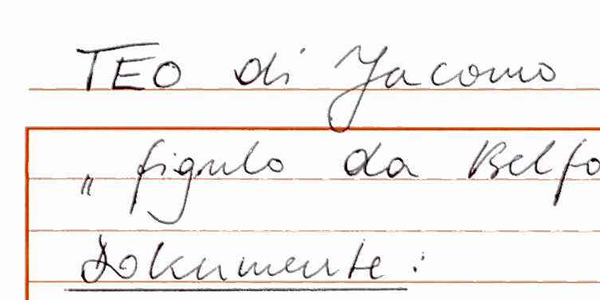 TEO di Jacomo
„ figulo da Belfo
Dokumente: